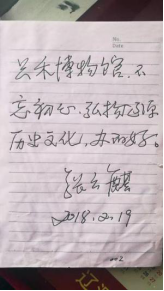 No.
Date
吴禾博物馆,不
忘初心,弘扬辽原
历史文化,办的好。
张云麒
2018.2.19